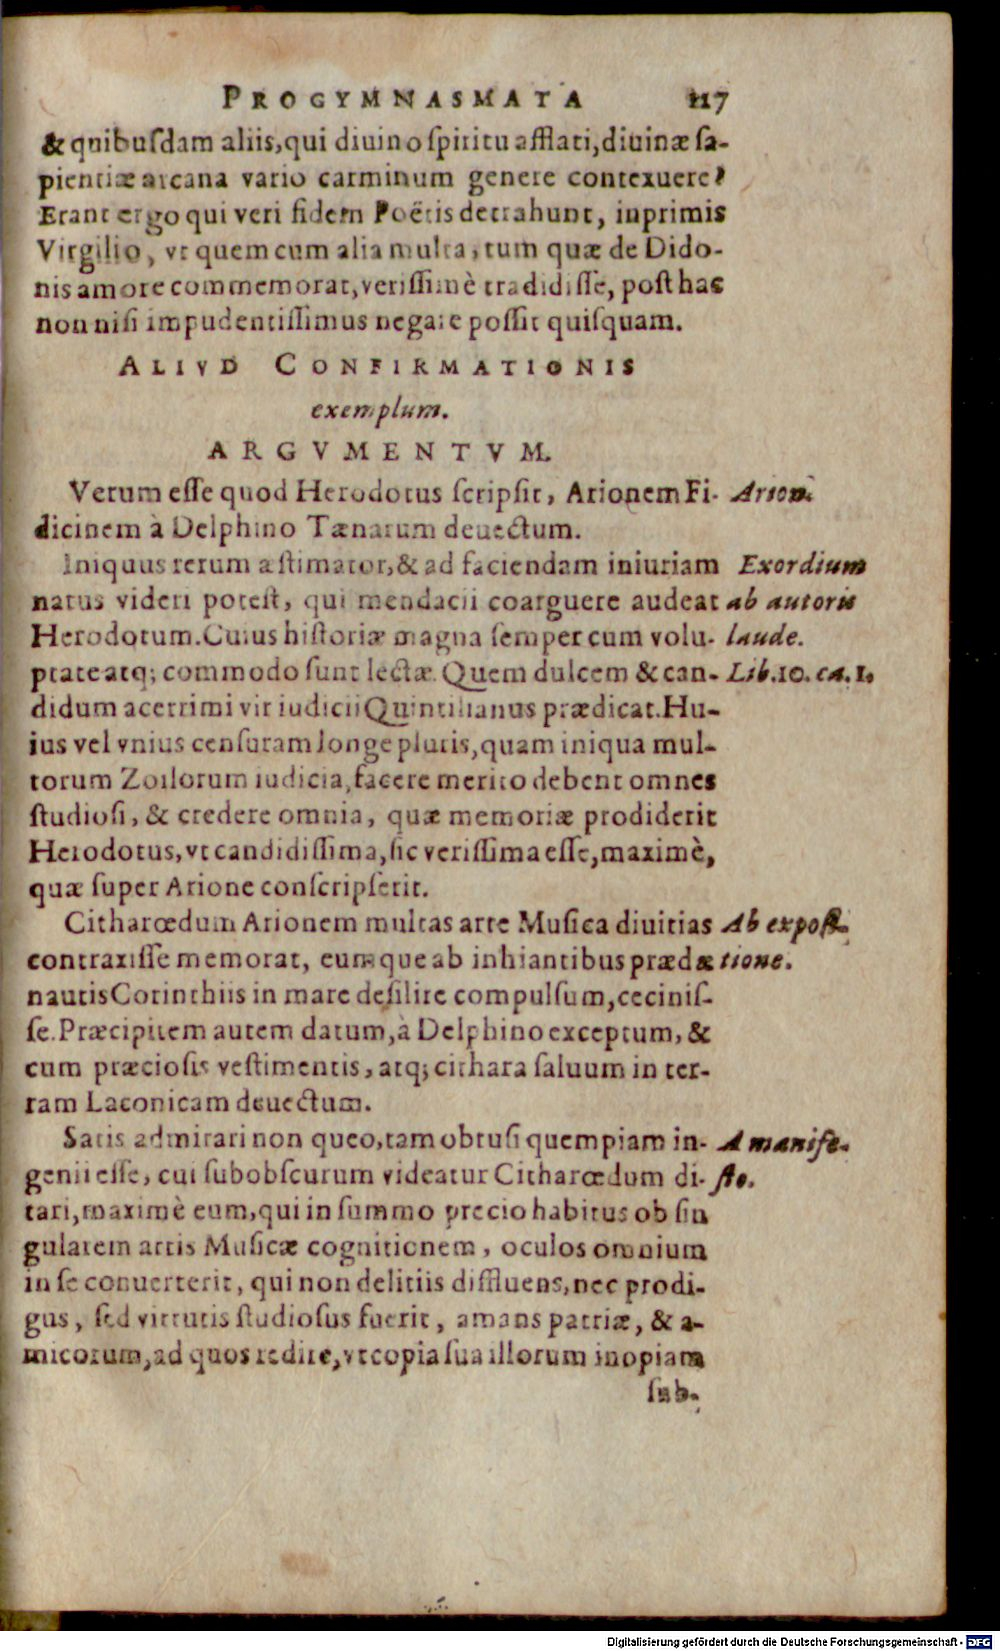 PROGYMNASMATA 117
& quibusdam aliis, qui diuino spiritu afflati, diuinæ sa-
pientiæ arcana vario carminum genere contexuere?
Erant ergo qui veri fidem Poëtis detrahunt, inprimis
Virgilio, vt quem cum alia multa, tum quæ de Dido-
nis amore commemorat, verissimè tradidisse, post hac
non nisi impudentissimus negare possit quisquam.
ALIVD CONFIRMATIONIS
exemplum.
ARGVMENTVM.
Verum esse quod Herodotus scripsit, Arionem Fi- Arion.
dicinem à Delphino Tænarum deuectum.
Iniquus rerum æstimator, & ad faciendam iniuriam Exordium
natus videri potest, qui mendacii coarguere audeat ab autoris
Herodotum. Cuius historiæ magna semper cum volu- laude.
ptate atq; commodo sunt lectæ. Quem dulcem & can- Lib. 10. ca. 1.
didum acerrimi vir iudicii Quintilianus prædicat. Hu-
ius vel vnius censuram longe pluris, quam iniqua mul-
torum Zoilorum iudicia, facere merito debent omnes
studiosi, & credere omnia, quæ memoriæ prodiderit
Herodotus, vt candidissima, sic verissima esse, maximè,
quæ super Arione conscripserit.
Citharœdum Arionem multas arte Musica diuitias Ab exposi-
contraxisse memorat, eumque ab inhiantibus prædæ tione.
nautis Corinthiis in mare desilire compulsum, cecinis-
se. Præcipitem autem datum, à Delphino exceptum, &
cum præciosis vestimentis, atq; cithara saluum in ter-
ram Laconicam deuectum.
Satis admirari non queo, tam obtusi quempiam in- A manife-
genii esse, cui subobscurum videatur Citharœdum di- sto.
tari, maximè eum, qui in summo precio habitus ob sin
gularem artis Musicæ cognitionem, oculos omnium
in se conuerterit, qui non delitiis diffluens, nec prodi-
gus, sed virtutis studiosus fuerit, amans patriæ, & a-
micorum, ad quos redire, vt copia sua illorum inopiam
sub-
Digitalisierung gefördert durch die Deutsche Forschungsgemeinschaft - DFG